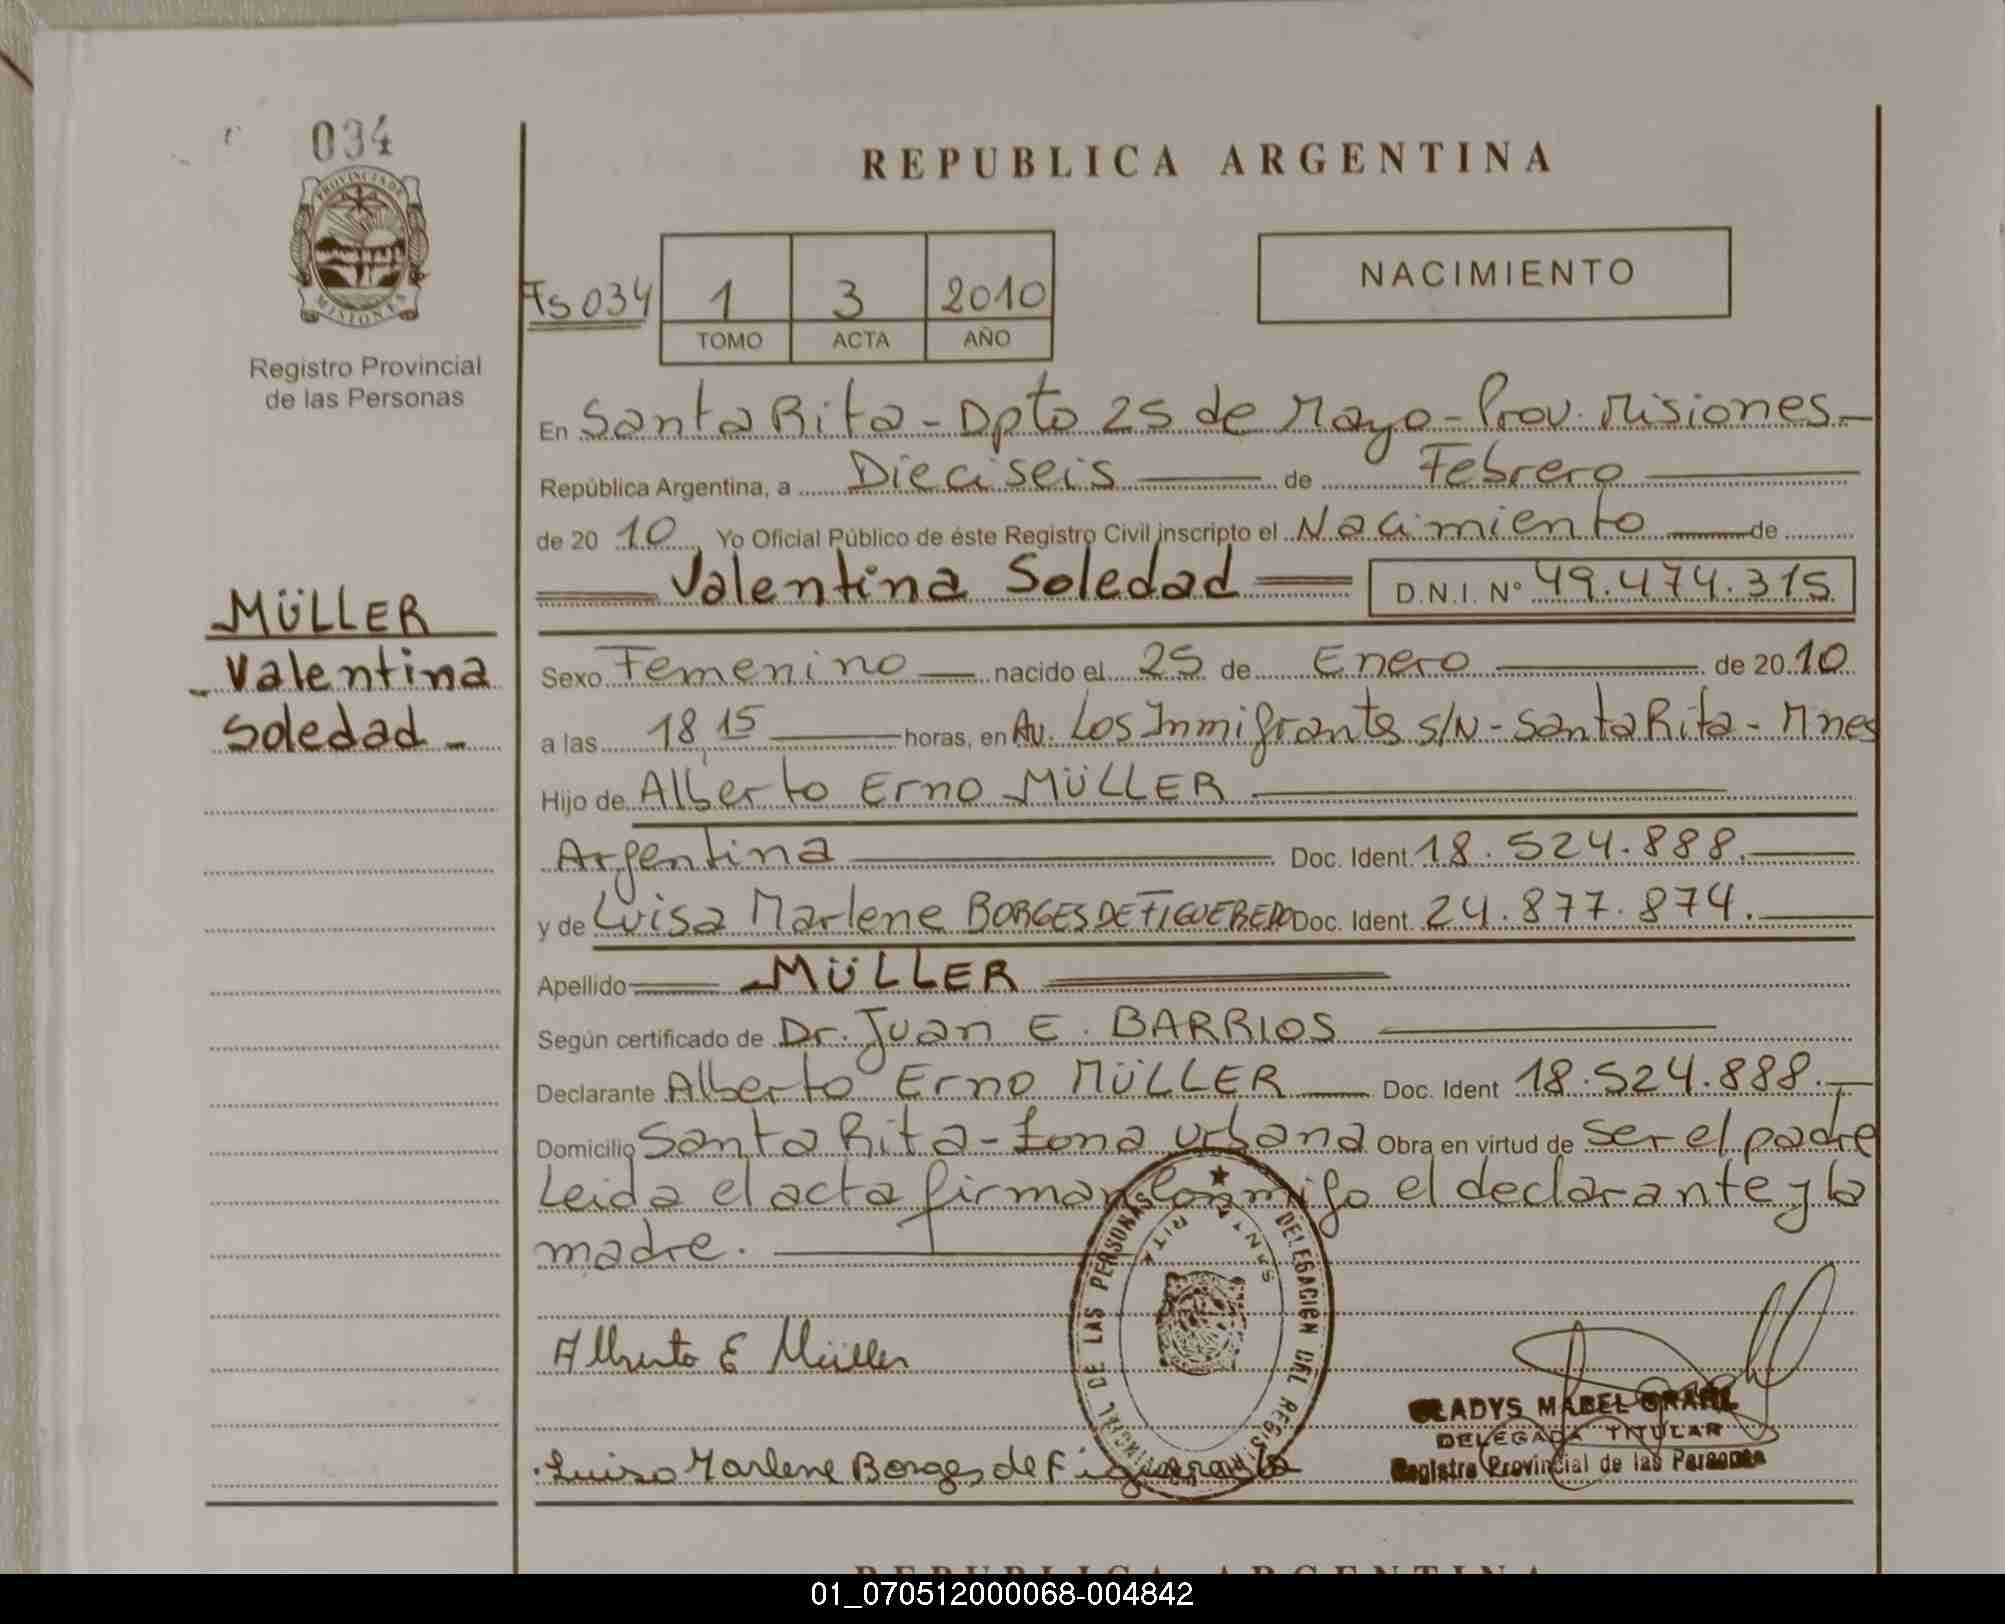 034
PROVINCIA DE
MISIONES
Registro Provincial
de las Personas
REPUBLICA ARGENTINA
Fs 034
1 3 2010
TOMO ACTA AÑO
NACIMIENTO
En Santa Rita - Dpto 25 de Mayo - Prov. Misiones -
República Argentina, a Dieciseis de Febrero
de 2010 Yo Oficial Público de éste Registro Civil inscripto el Nacimiento de
Valentina Soledad D.N.I. Nº 49.474.315
MÜLLER
Valentina
Soledad -
Sexo Femenino nacido el 25 de Enero de 2010
a las 18,15 horas, en Av. Los Inmigrantes S/N - Santa Rita - Mnes
Hijo de Alberto Erno MÜLLER
Argentina Doc. Ident. 18.524.888.
y de Luisa Marlene BORGES DE FIGUEREDO Doc. Ident. 24.877.874.
Apellido MÜLLER
Según certificado de Dr. Juan E. BARRIOS
Declarante Alberto Erno MÜLLER Doc. Ident 18.524.888.
Domicilio Santa Rita - Zona urbana Obra en virtud de ser el padre
Leida el acta firman conmigo el declarante y la
madre.
DELEGACION DEL REGISTRO PROVINCIAL DE LAS PERSONAS
SANTA RITA
Alberto E Müller
GLADYS MABEL
DELEGADA TITULAR
Registro Provincial de las Personas
Luisa Marlene Borges de
REPUBLICA ARGENTINA
01_070512000068-004842